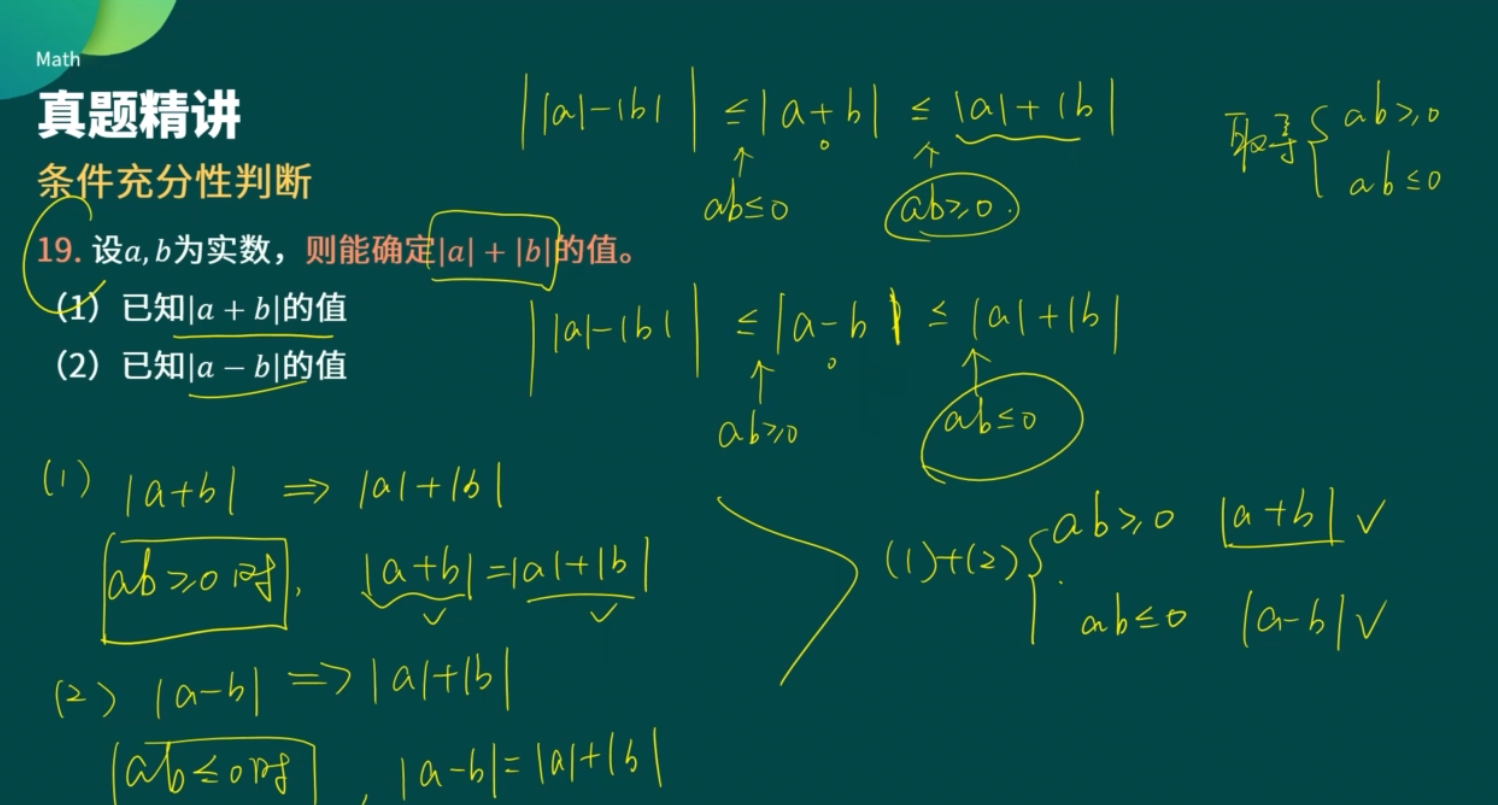 Math
真题精讲
条件充分性判断
19. 设a, b为实数，则能确定|a| + |b|的值。
（1）已知|a + b|的值
（2）已知|a − b|的值
||a|-|b|| ≤ |a+b| ≤ |a|+|b|
ab≤0 ab≥0
取等 { ab≥0
ab≤0
||a|-|b|| ≤ |a-b| ≤ |a|+|b|
ab≥0 ab≤0
(1) |a+b| ⇒ |a|+|b|
ab≥0时, |a+b|=|a|+|b|
(2) |a-b| ⇒ |a|+|b|
ab≤0时, |a-b|=|a|+|b|
(1)+(2) { ab≥0 |a+b| ✓
ab≤0 |a-b| ✓